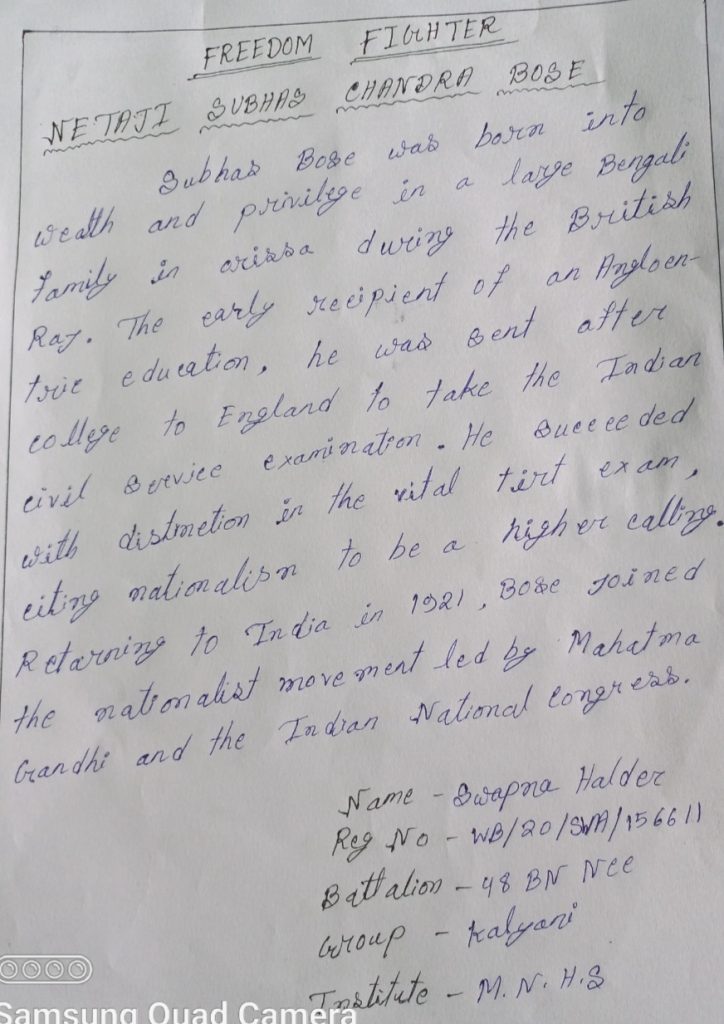 FREEDOM FIGHTER
NETAJI SUBHAS CHANDRA BOSE
Subhas Bose was born into
wealth and privilege in a large Bengali
family in orissa during the British
Raj. The early recipient of an Angloen-
tric education, he was sent after
college to England to take the Indian
civil service examination. He succeeded
with distinction in the vital first exam,
citing nationalism to be a higher calling.
Returning to India in 1921, Bose joined
the nationalist movement led by Mahatma
Gandhi and the Indian National Congress.
Name - Swapna Halder
Reg No - WB/20/SWA/156611
Battalion - 48 BN NCC
Group - Kalyani
Institute - M. N. H. S
Samsung Quad Camera